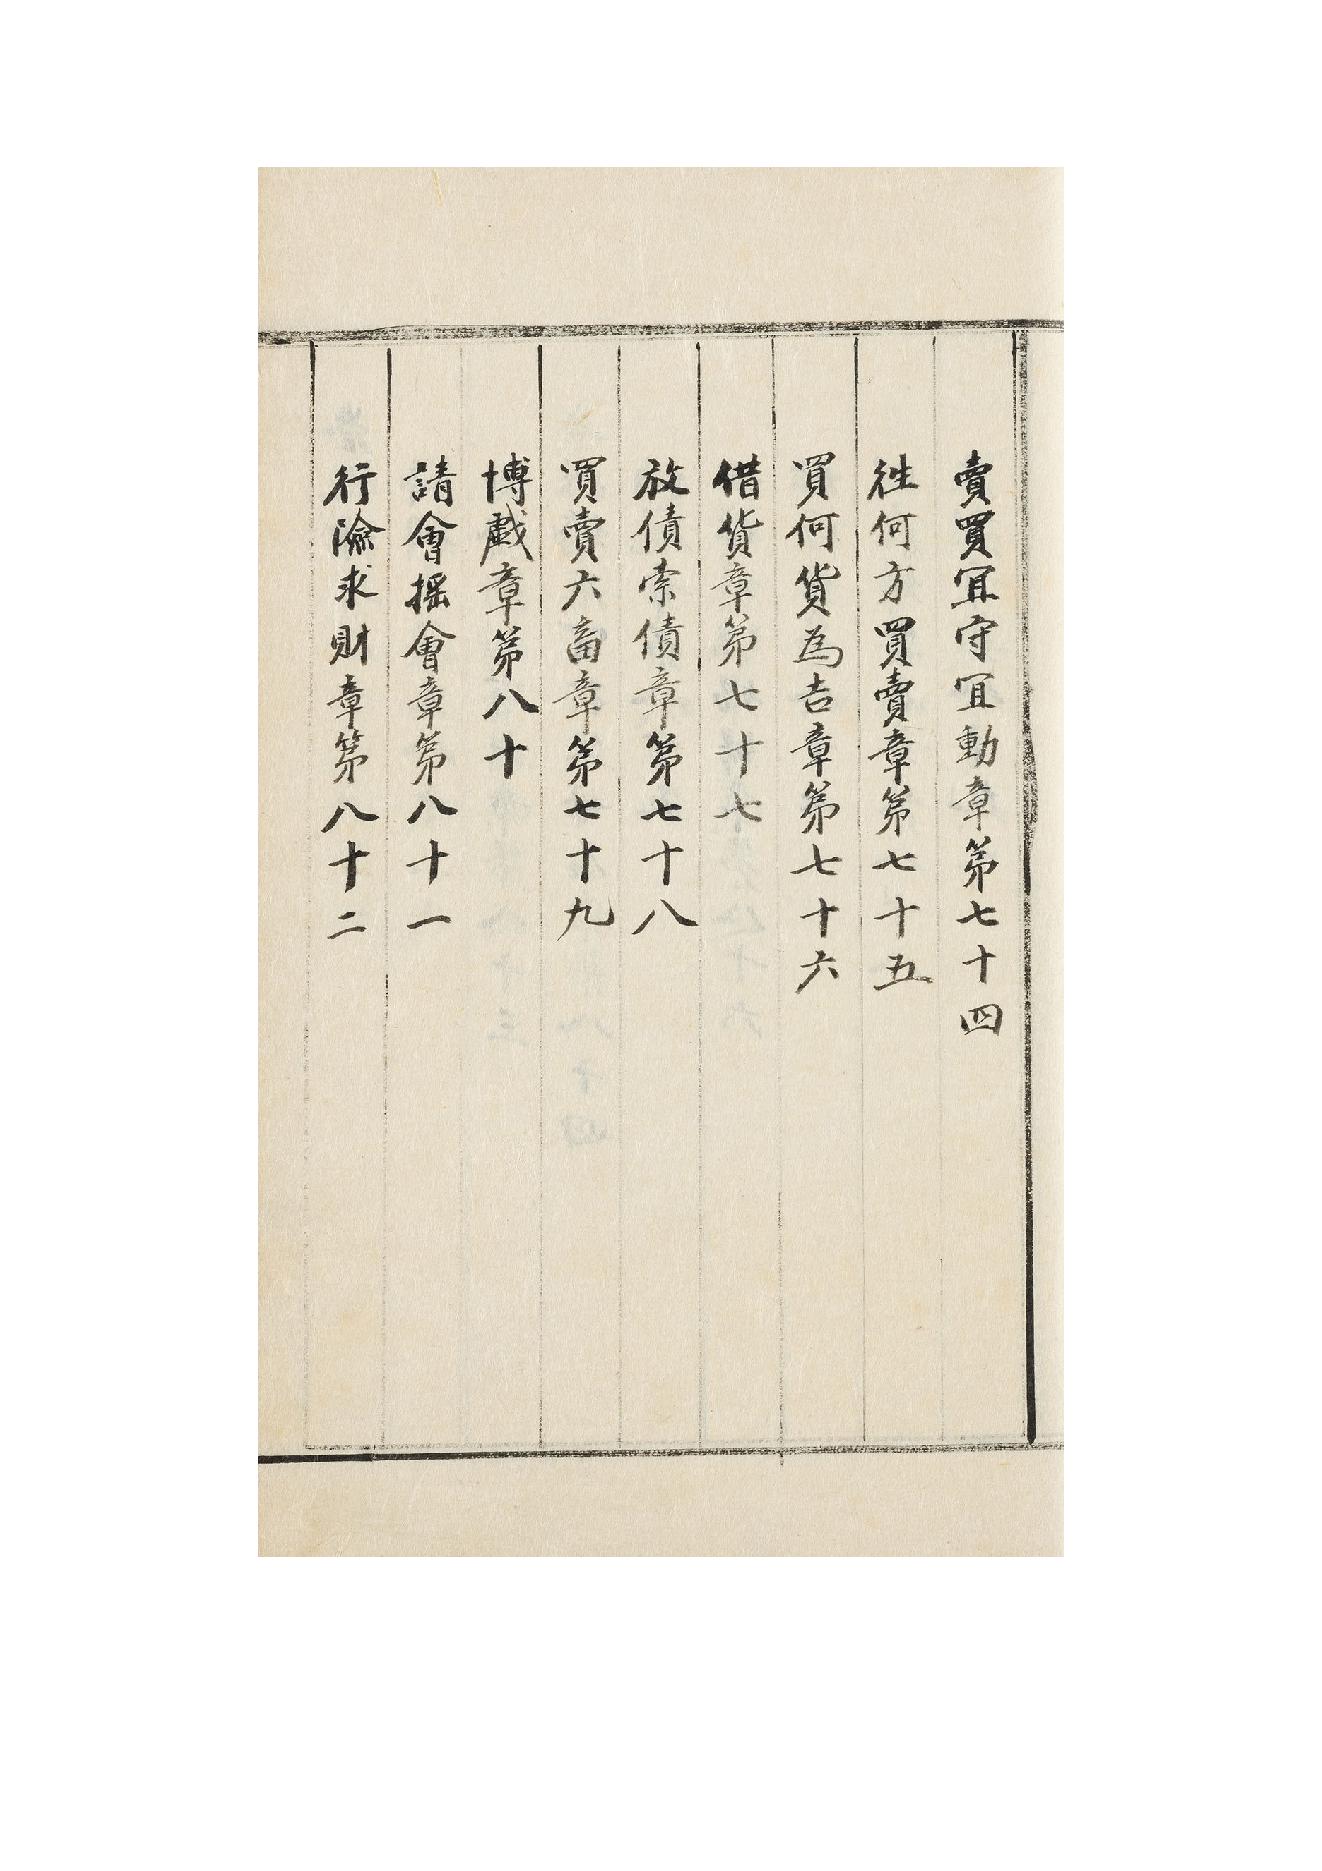 賣買宜守宜動章第七十四
徃何方買賣章第七十五
買何貨為吉章第七十六
借貨章第七十七
放債索債章第七十八
買賣六畜章第七十九
博戲章第八十
請會搖會章第八十一
行險求財章第八十二